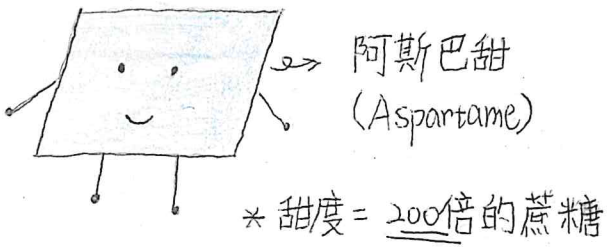 阿斯巴甜
(Aspartame)
* 甜度 = 200倍的蔗糖